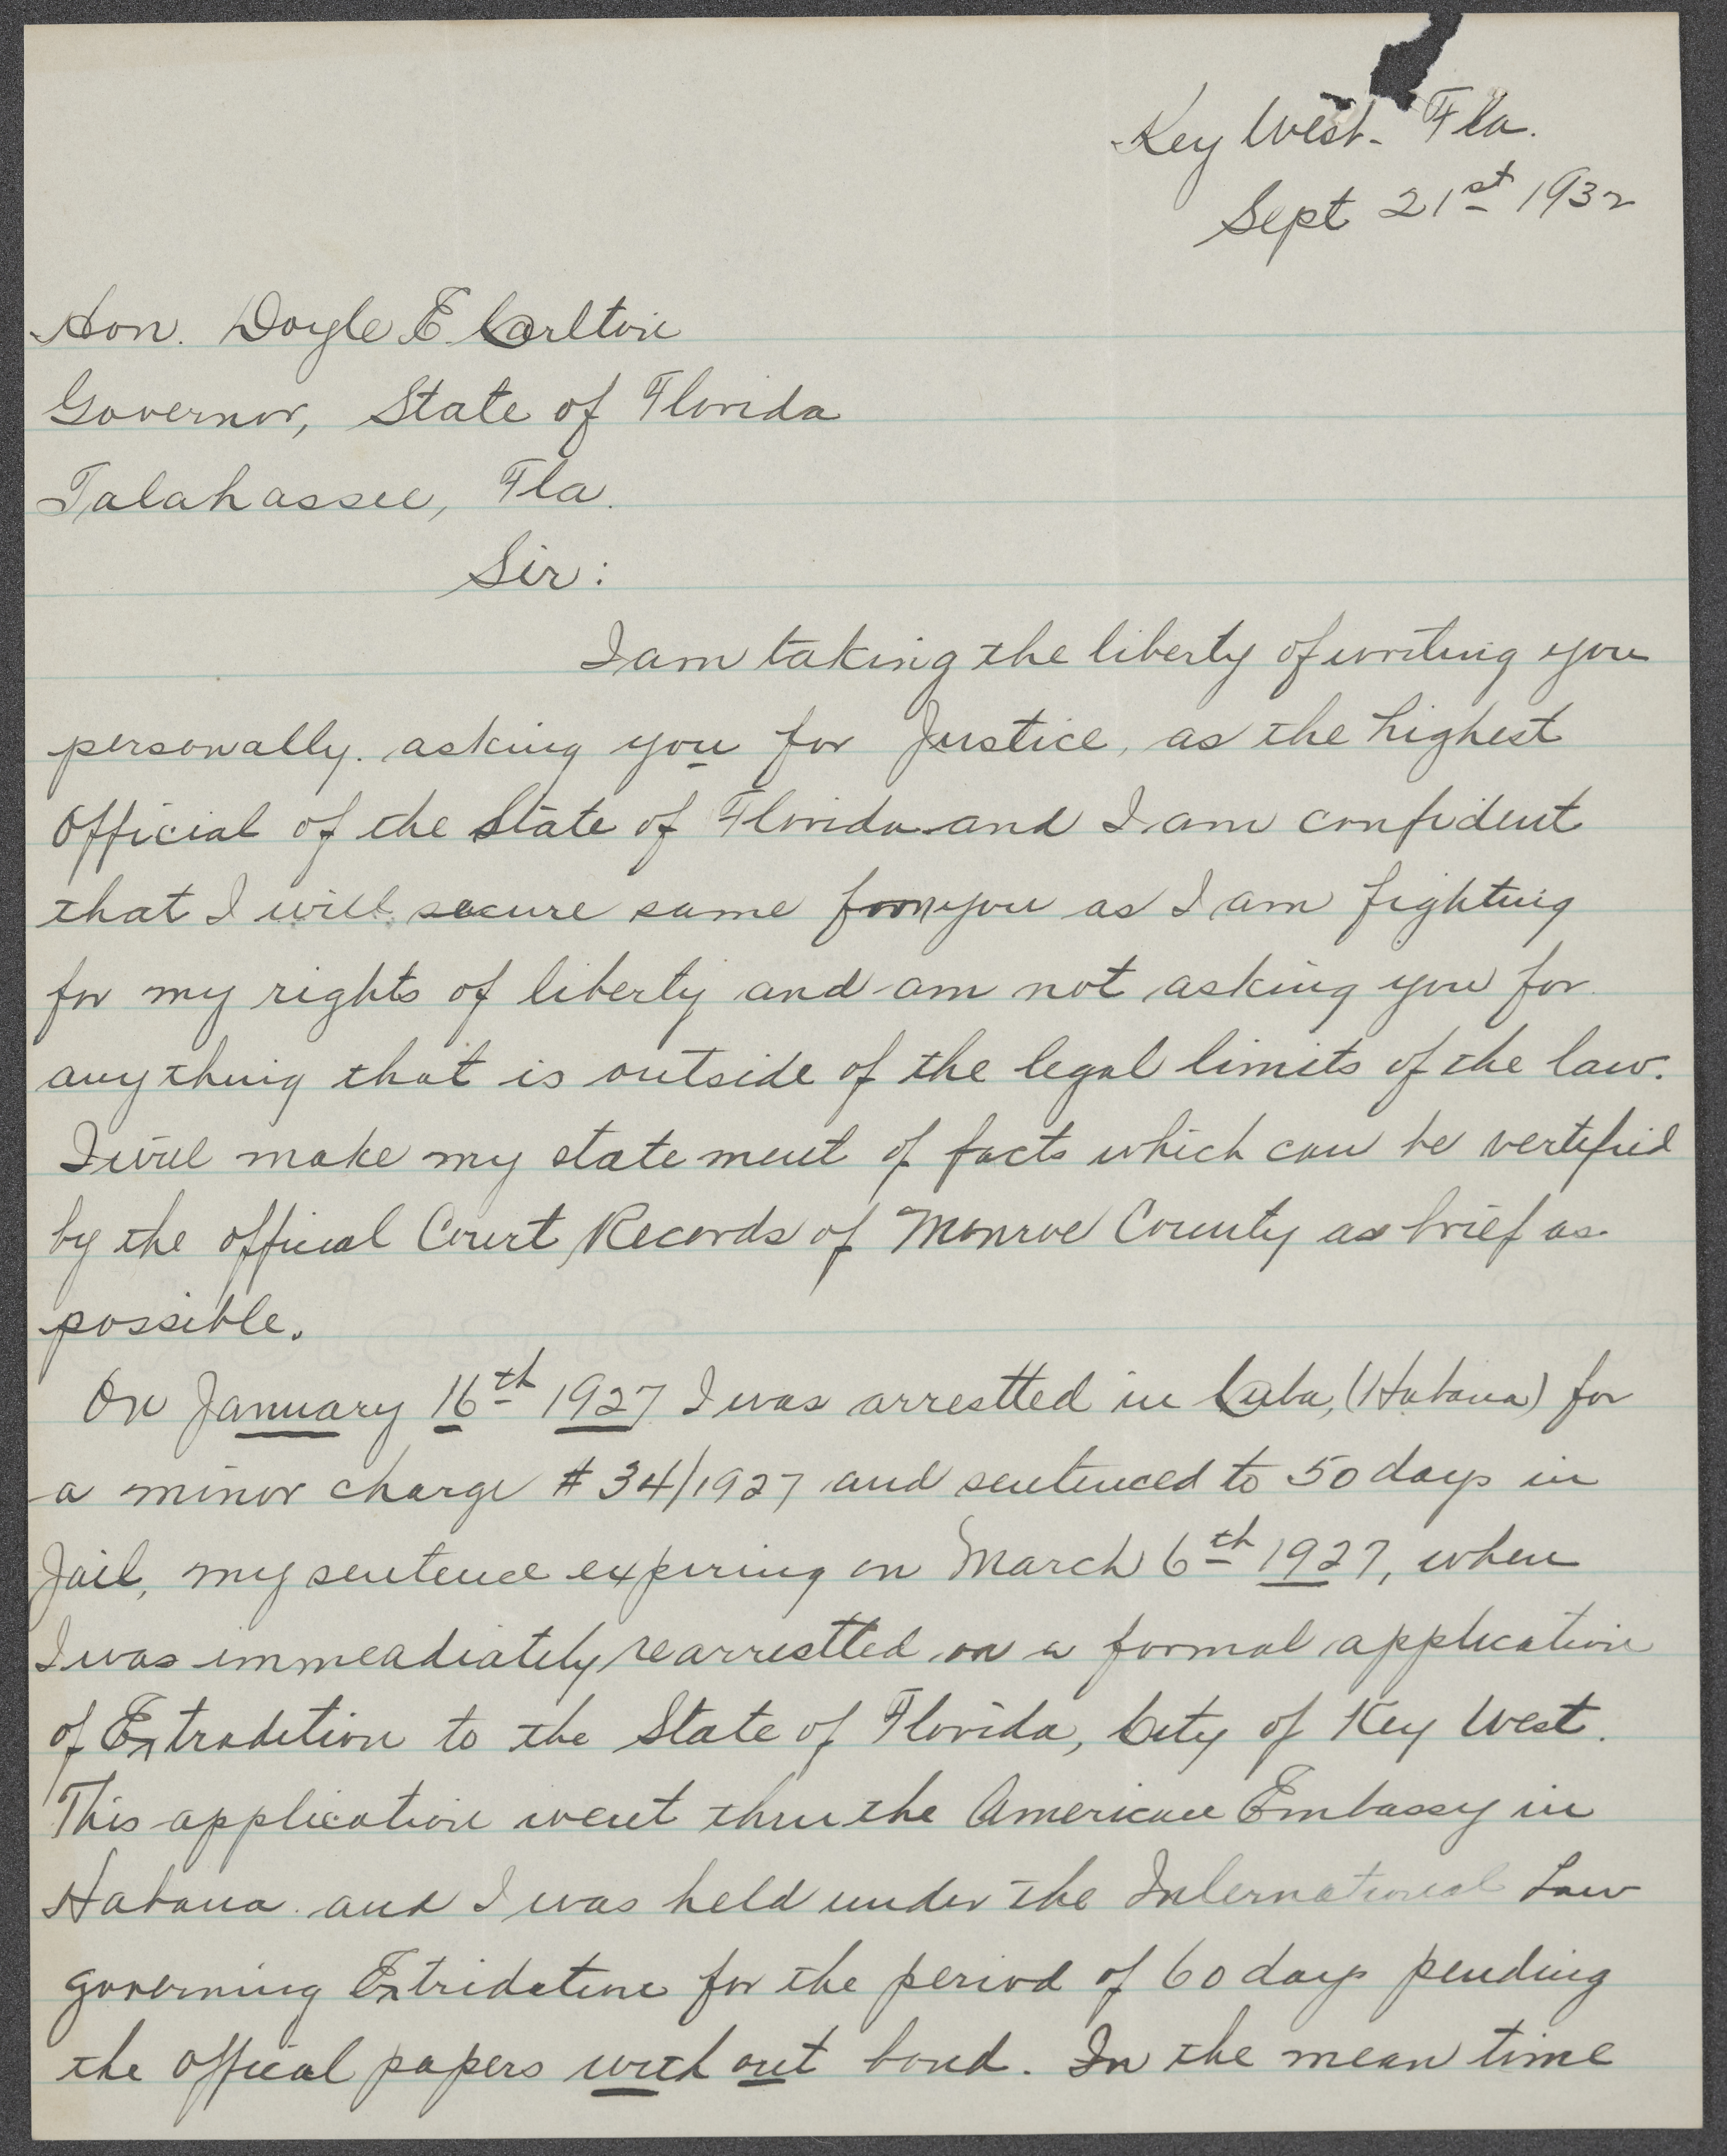 Key West. Fla.
Sept 21st 1932
Hon. Doyle E Carlton
Governor, State of Florida
Talahassee, Fla.
Sir:
I am taking the liberty of writing you
personally. asking you for Justice, as the highest
Official of the State of Florida and I am confident
that I will secure same from you as I am fighting
for my rights of liberty and am not asking you for
anything that is outside of the legal limits of the law.
I will make my statement of facts which can be vertified
by the offical Court Records of Monroe County as brief as
possible.
On January 16th 1927 I was arrestted in Cuba, (Habana) for
a minor charge # 34/1927 and sentenced to 50 days in
Jail, my sentence expiring on March 6th 1927, when
I was immeadiately rearrestted on a formal application
of Extradition to the State of Florida, City of Key West.
This application went thru the American Embassy in
Habana. and I was held under the International Law
governing Extridation for the period of 60 days pending
the offical papers with out bond. In the mean time